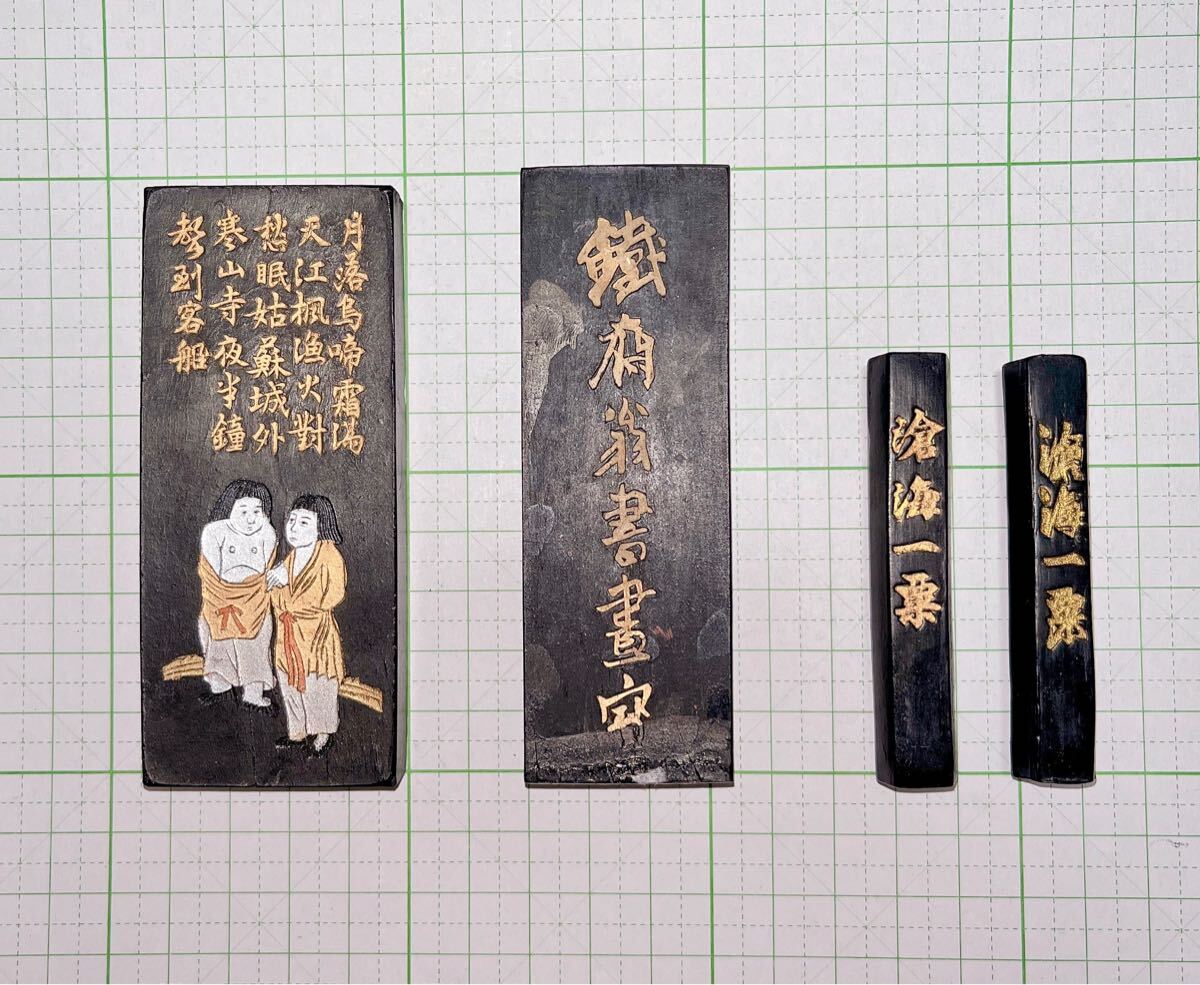 月落烏啼霜滿
天江楓漁火對
愁眠姑蘇城外
寒山寺夜半鐘
聲到客船
鐵齋翁書畫寶
滄海一粟
滄海一粟